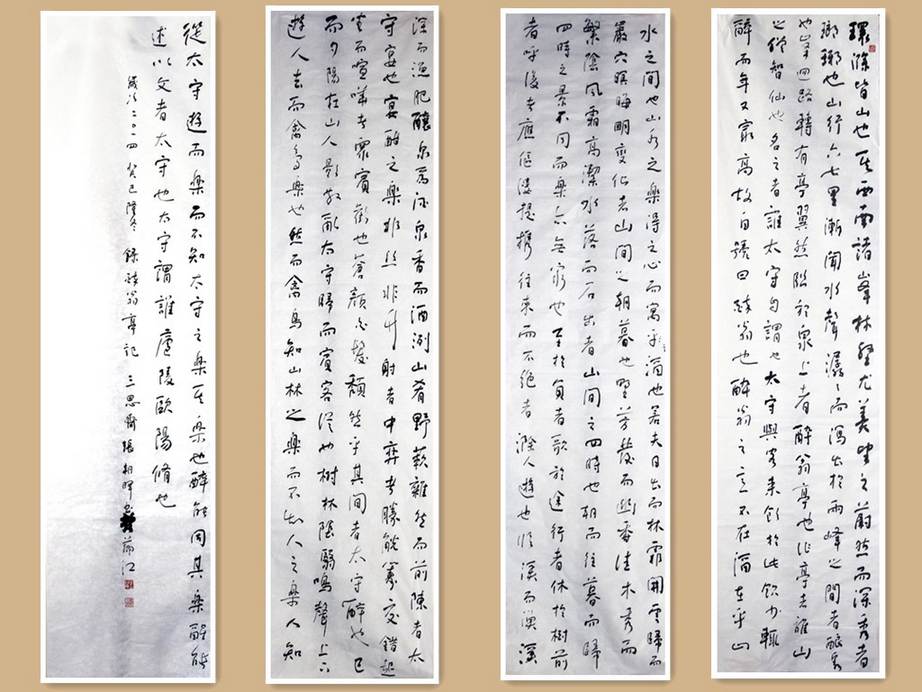 環滁皆山也其西南諸峰林壑尤美望之蔚然而深秀者
瑯琊也山行六七里漸聞水聲潺々而瀉出於兩峰之間者釀泉
也峯回路轉有亭翼然臨於泉上者醉翁亭也作亭者誰山
之僧智仙也名之者誰太守自謂也太守與客來飲於此飲少輒
醉而年又最高故自號曰醉翁也醉翁之意不在酒在乎山
水之間也山水之樂得之心而寓之酒也若夫日出而林霏開雲歸而
巖穴暝晦明變化者山間之朝暮也野芳發而幽香佳木秀而
繁陰風霜高潔水落而石出者山間之四時也朝而往暮而歸
四時之景不同而樂亦無窮也至於負者歌於途行者休於樹前
者呼後者應傴僂提攜往來而不絕者滁人遊也臨溪而漁溪
深而漁肥釀泉為酒泉香而酒洌山肴野蔌雜然而前陳者太
守宴也宴酣之樂非絲非竹射者中弈者勝觥籌交錯起
坐而喧嘩者眾賓歡也蒼顏白髮頹然乎其間者太守醉也已
而夕陽在山人影散亂太守歸而賓客從也樹林陰翳鳴聲上下
遊人去而禽鳥樂也然而禽鳥知山林之樂而不知人之樂人知
從太守遊而樂而不知太守之樂其樂也醉能同其樂醒能
述以文者太守也太守謂誰廬陵歐陽脩也
歲次二〇一四癸巳隆冬 錄醉翁亭記 三思齋張相暉